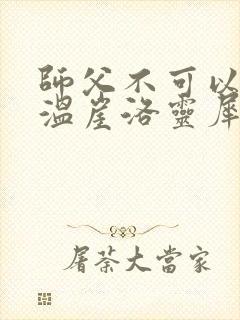 師父不可以
溫崖洛靈犀
屠荼大當家